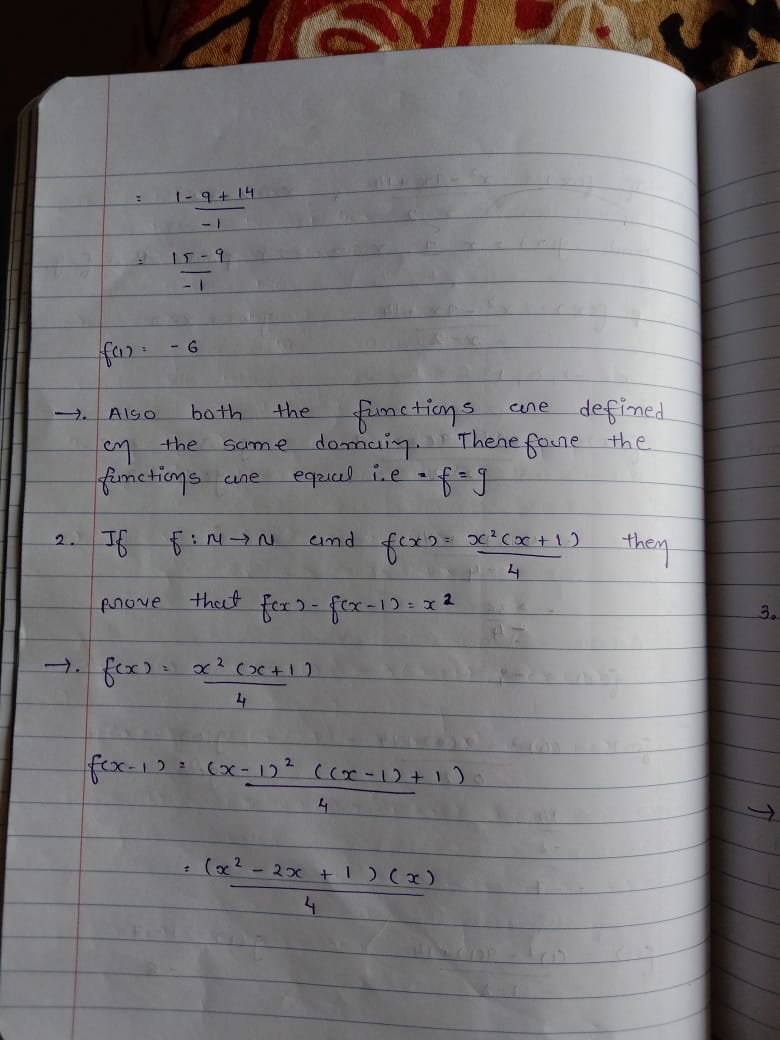 = 1 - 9 + 14
-1
= 15 - 9
-1
f(1) = - 6
→. Also both the functions are defined
on the same domain. Therefore the
functions are equal i.e = f = g
2. If f : N → N and f(x) = x² (x + 1) then
4
prove that f(x) - f(x - 1) = x²
3.
→. f(x) = x² (x + 1)
4
f(x - 1) = (x - 1)² ((x - 1) + 1)
4
→
= (x² - 2x + 1) (x)
4